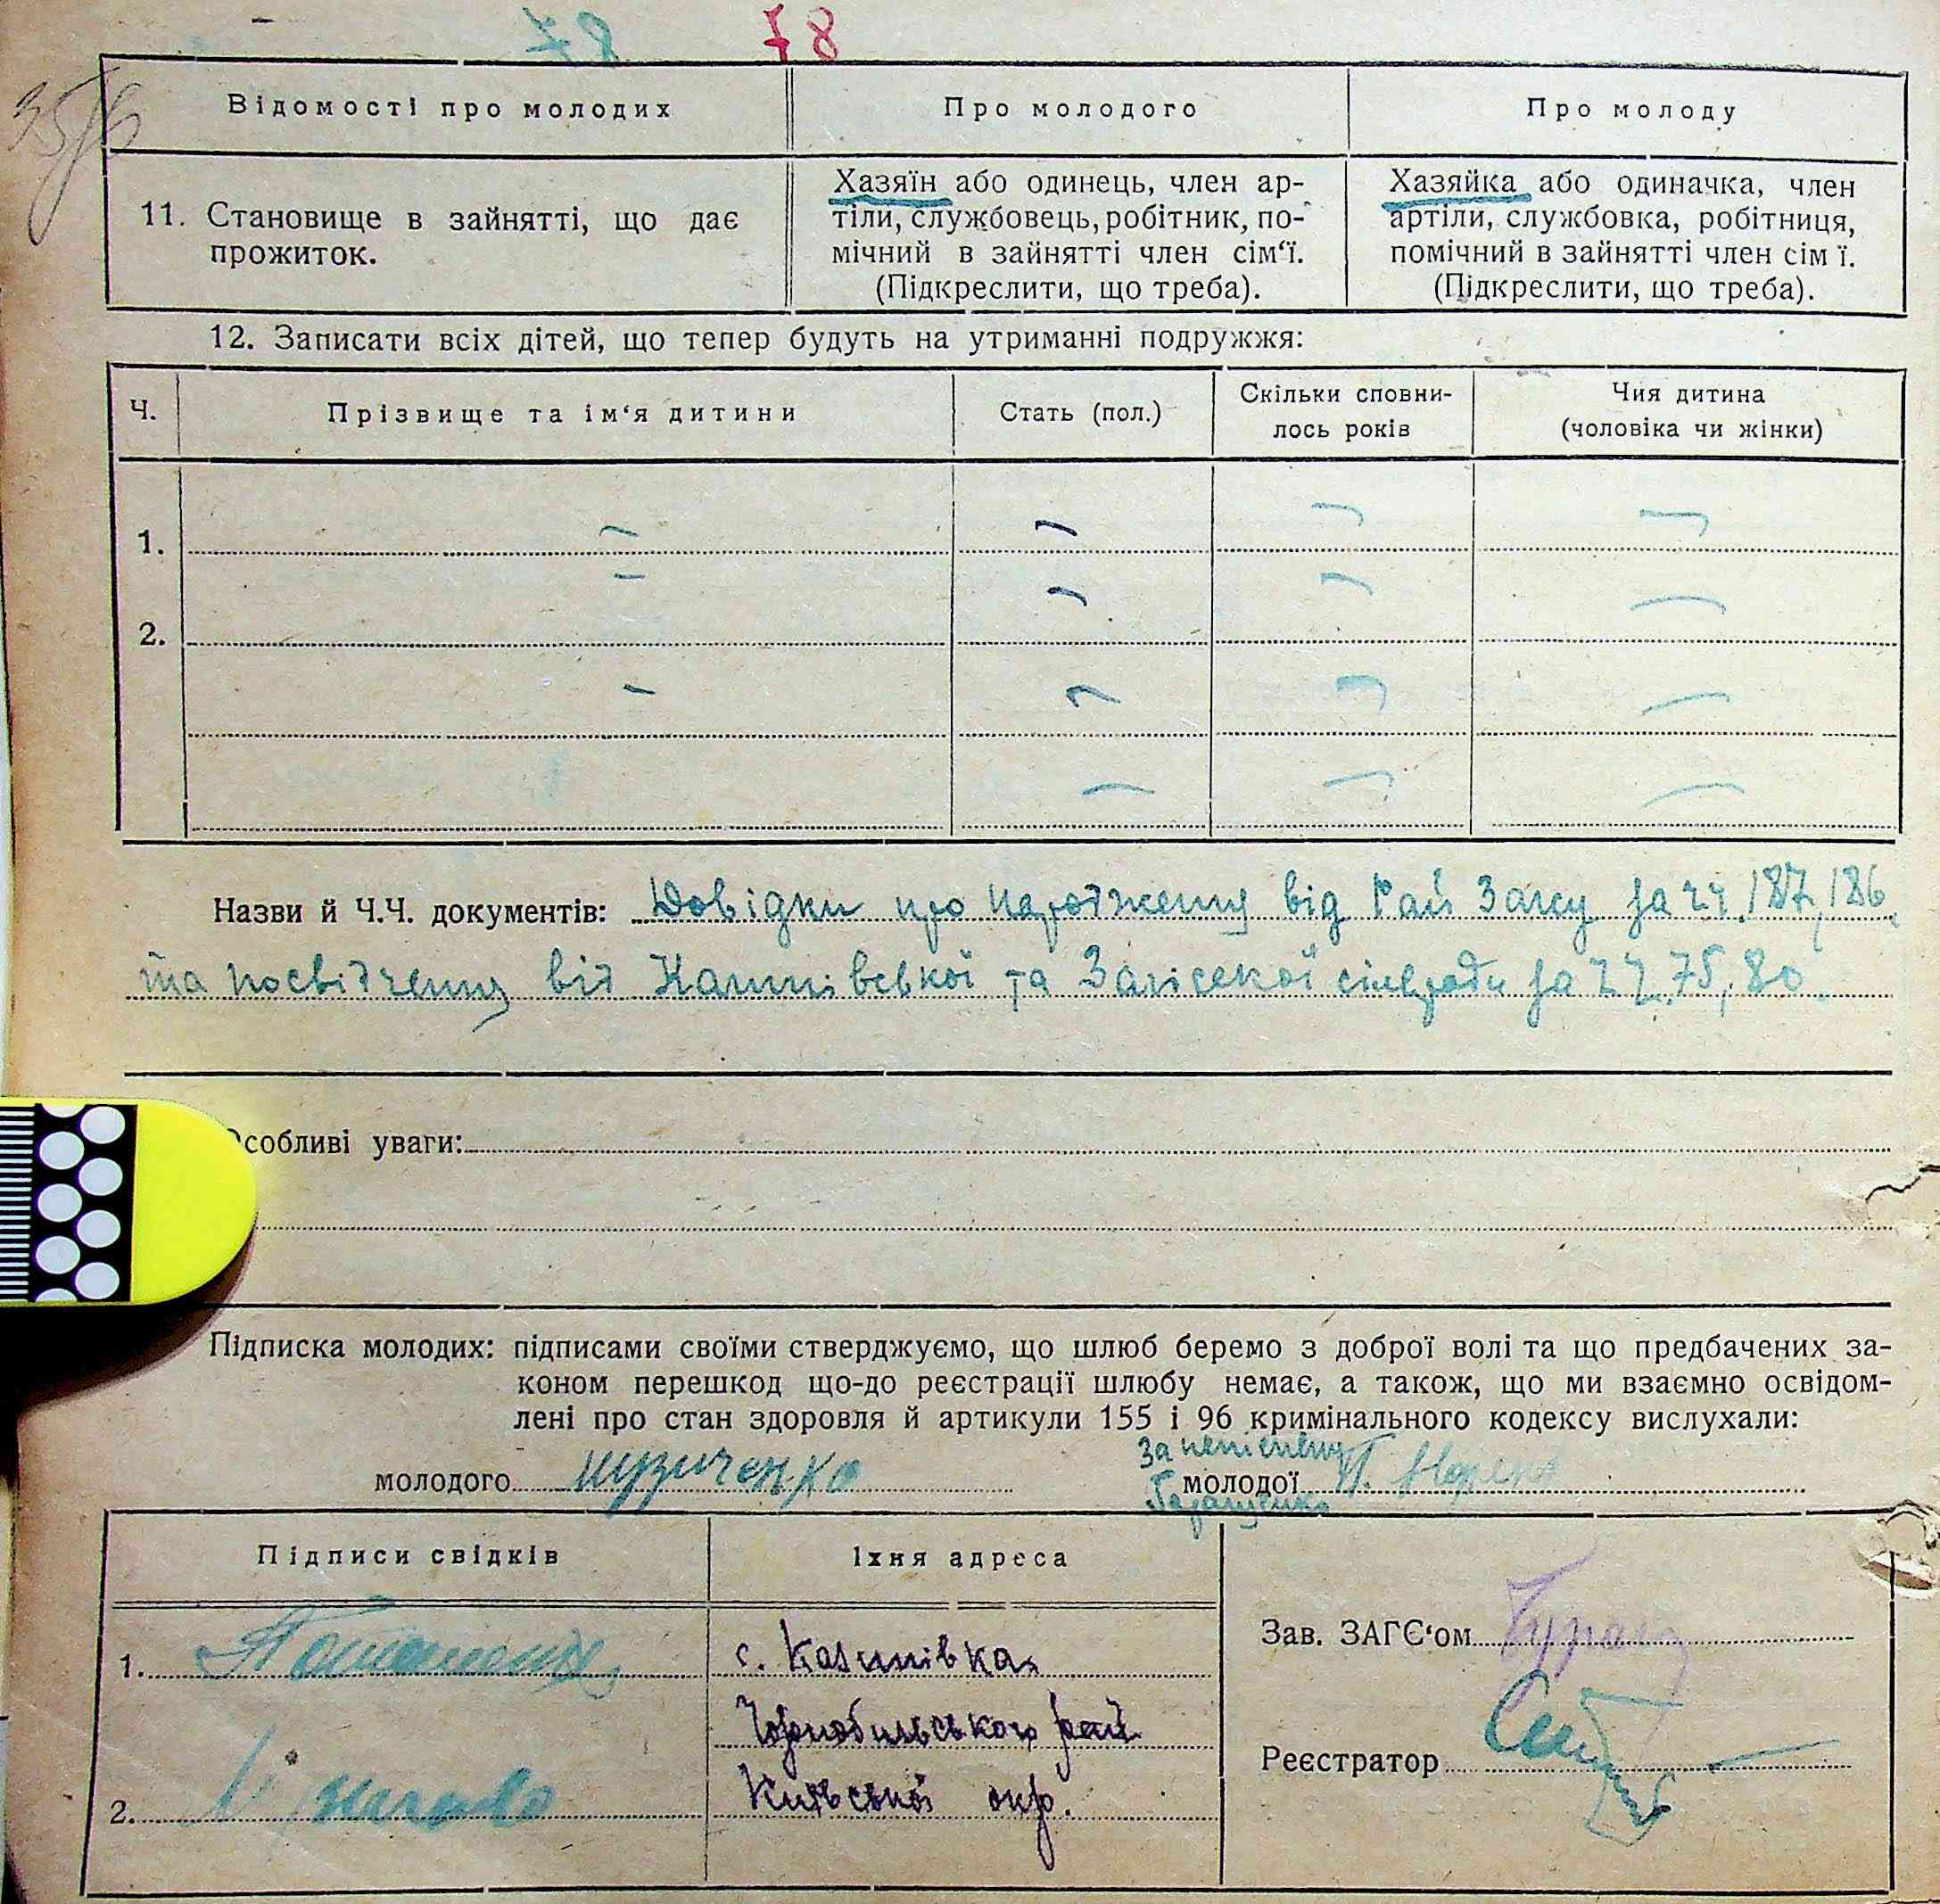 78 78
35/6
Відомості про молодих Про молодого Про молоду
11. Становище в зайнятті, що дає прожиток.
Хазяїн або одинець, член ар-
тіли, службовець, робітник, по-
мічний в зайнятті член сім‘ї.
(Підкреслити, що треба).
Хазяйка або одиначка, член
артіли, службовка, робітниця,
помічний в зайнятті член сім ї.
(Підкреслити, що треба).
12. Записати всіх дітей, що тепер будуть на утриманні подружжя:
Ч. Прізвище та ім‘я дитини Стать (пол.) Скільки сповни-
лось років Чия дитина
(чоловіка чи жінки)
1. – – – –
2. – – – –
– – – –
– – –
Назви й Ч.Ч. документів: Довідки про народження від Рай Загсу за чч. 187, 186
та посвідчення від та Заліської сільради за чч. 75, 80.
Особливі уваги:
Підписка молодих: підписами своїми стверджуємо, що шлюб беремо з доброї волі та що предбачених за-
коном перешкод що-до реєстрації шлюбу немає, а також, що ми взаємно освідом-
лені про стан здоровля й артикули 155 і 96 кримінального кодексу вислухали:
молодого Музиченко За неписьмену молодої
Підписи свідків Їхня адреса
1. с.
Чорнобильського рай
2. Київської окр.
Зав. ЗАГС‘ом
Реєстратор